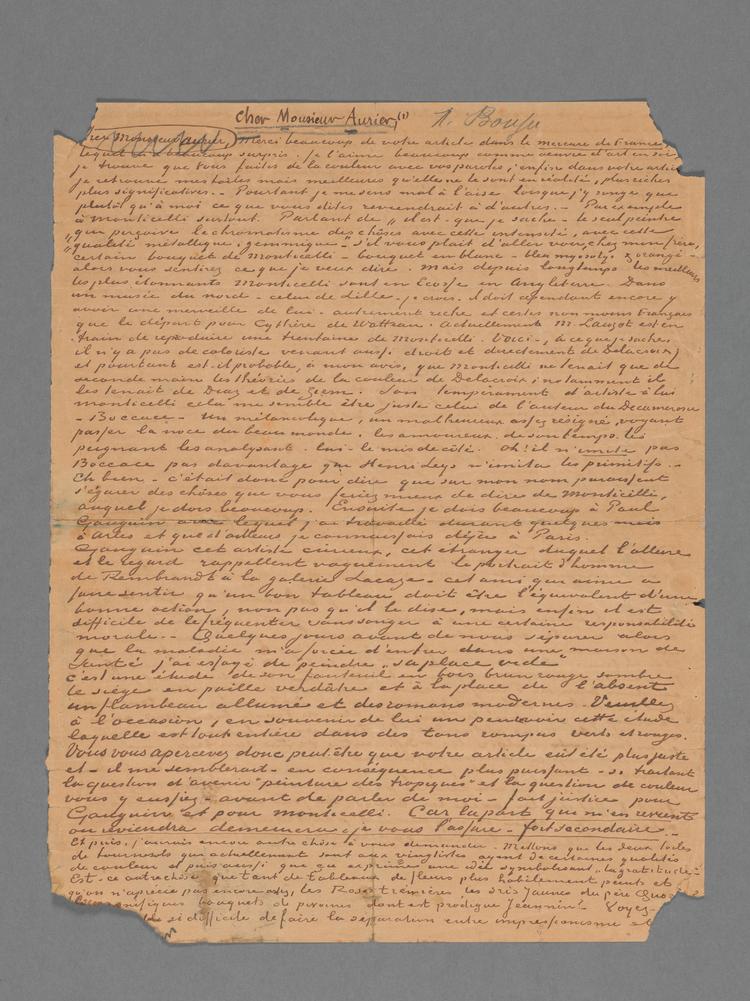 Cher Monsieur Aurier, (1)
Cher Monsieur Aurier, Merci beaucoup de votre article dans le mercure de France,
lequel m'a beaucoup surpris. je l'aime beaucoup comme œuvre d'art en soi
je trouve que vous faites de la couleur avec vos paroles; enfin dans votre article
je retrouve mes toiles mais meilleures qu'elles ne le sont en réalité, plus riches
plus significatives. – Pourtant je me sens mal à l'aise lorsque j'y songe que
plutôt qu'à moi ce que vous dites reviendrait à d'autres. – Par exemple
à monticelli surtout. Parlant de „ il est – que je sache – le seul peintre
„ qui perçoive le chromatisme des chôses avec cette intensité, avec cette
„ qualité métallique, gemmique" s'il vous plait d'aller voir, chez mon frère,
certain bouquet de Monticelli – bouquet en blanc – bleu myosotys & orangé –
alors vous sentirez ce que je veux dire. Mais depuis longtemps les meilleurs
les plus étonnants Monticelli sont en Ecosse en Angleterre. Dans
un musée du nord – celui de Lille je crois, il doit cependant encore y
avoir une merveille de lui – autrement riche et certes non moins français
que le départ pour Cythère de Watteau. Actuellement M. Lauzet est en
train de reproduire une trentaine de Monticelli. Voici, à ce que je sache,
il n'y a pas de coloriste venant aussi droit et directement de Delacroix;
et pourtant est-il probable, à mon avis, que Monticelli ne tenait que de
seconde main les théories de la couleur de Delacroix; notamment il
les tenait de Diaz et de Ziem. Son tempérament d'artiste à lui
monticelli cela me semble être juste celui de l'auteur du Decamerone
– Boccace – Un mélancolique, un malheureux assez résigné, voyant
passer la noce du beau monde, les amoureux de son temps, les
peignant les analysant, lui – le mis de côté. Oh! il n'imite pas
Boccace pas davantage que Henri Leys n'imita les primitifs. –
Eh bien – c'était donc pour dire que sur mon nom paraissent
s'égarer des chôses que vous feriez mieux de dire de Monticelli,
auquel je dois beaucoup. Ensuite je dois beaucoup à Paul
Gauguin avec lequel j'ai travaillé durant quelques mois
à Arles et que d'ailleurs je connaissais déjà à Paris.
Gauguin cet artiste curieux, cet étranger duquel l'allure
et le regard rappellent vaguement le portrait d'homme
de Rembrandt à la galerie Lacaze – cet ami qui aime à
faire sentir qu'un bon tableau doit être l'équivalent d'une
bonne action, non pas qu'il le dise, mais enfin il est
difficile de le fréquenter sans songer à une certaine responsabilité
morale. – Quelques jours avant de nous séparer alors
que la maladie m'a forcé d'entrer dans une maison de
santé j'ai essayé de peindre „ sa place vide"
c'est une étude de son fauteuil en bois brun rouge sombre
le siège en paille verdâtre et à la place de l'absent
un flambeau allumé et des romans modernes. Veuillez
à l'occasion, en souvenir de lui un peu revoir cette étude
laquelle est tout entière dans des tons rompus verts et rouges.
Vous vous apercevrez donc peut être que votre article eût été plus juste
et – il me semblerait – en conséquence plus puissant – si traitant
la question d'avenir „ peinture des tropiques" et la question de couleur
vous y eussiez – avant de parler de moi – fait justice pour
Gauguin et pour monticelli. Car la part qui m'en revient
ou reviendra demeurera, je vous l'assure – fort secondaire. –
Et puis, j'aurais encore autre chôse à vous demander. Mettons que les deux toiles
de tournesols qui actuellement sont aux vingtistes ayent de certaines qualités
de couleur et puis aussi que ça exprime une idée symbolisant „ la gratitude".
Est-ce autre chôse que tant de tableaux de fleurs plus habilement peints et
qu'on n'apprécie pas encore assez, les Roses trémières les Iris Jaunes du père Quost
les magnifiques bouquets de pivoines dont est prodigue Jeannin? Voyez-
si difficile de faire la séparation entre impressionisme et